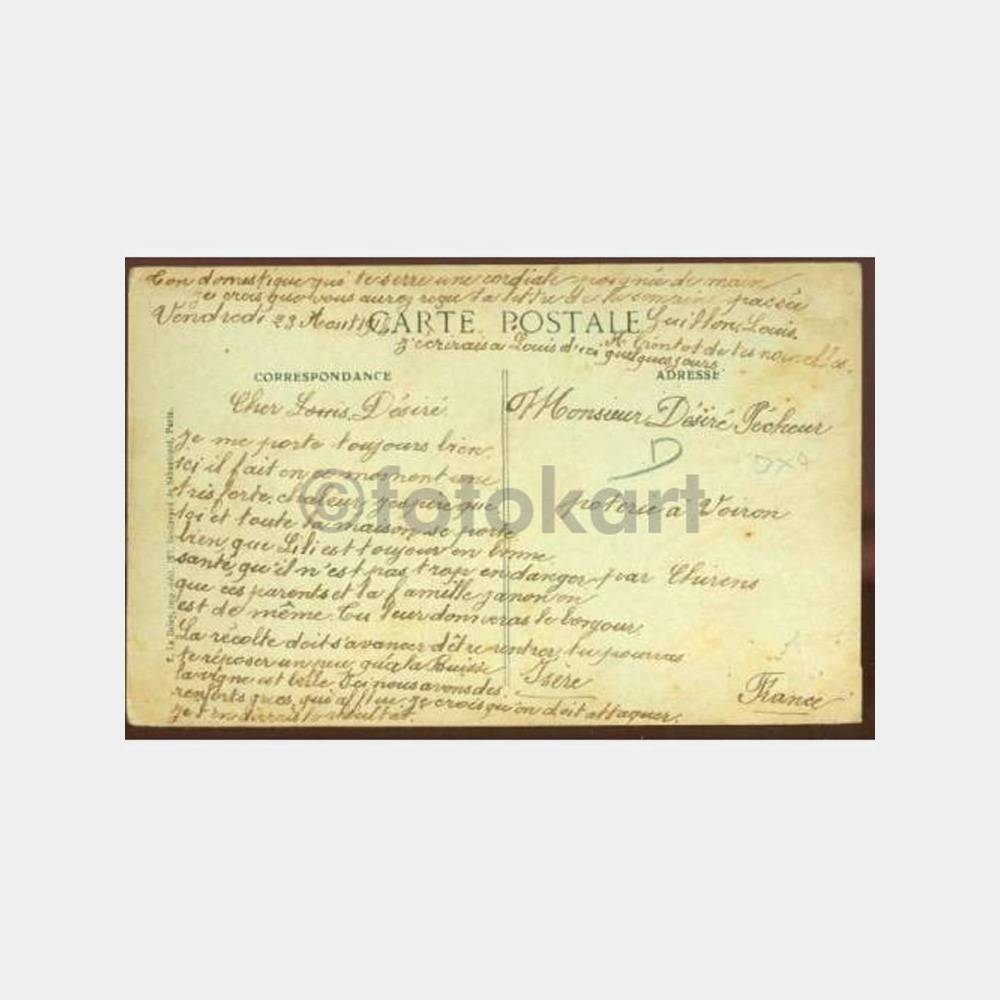 Ton domestique qui te serre une cordiale poignée de main
je crois que vous aurez reçue la lettre de la semaine passée
Vendredi 23 Aout Guillon Louis.
CARTE POSTALE
j'écrirais a Louis d'ici quelques jours
de tes nouvelles.
CORRESPONDANCE
ADRESSE
Cher Louis, Désiré.
Je me porte toujours bien
ici il fait en ce moment une
tres forte chaleur, j'espère que
toi et toute ta maison se porte
bien, que Lili est toujour en bonne
santé, qu'il n'est pas trop en danger
que ces parents et la famille Janon on
est de même. Tu leur donneras le bonjour.
La récolte doit s'avancer d'être rentrer, tu pourras
te réposer un peu, qu'a la Buisse
la vigne est belle. Ici nous avons des
renforts grecs, qui afflue. Je crois qu'on doit attaquer.
Monsieur Désiré Pécheur
poterie a Voiron
par Chirens
Isère
France
©fotokart